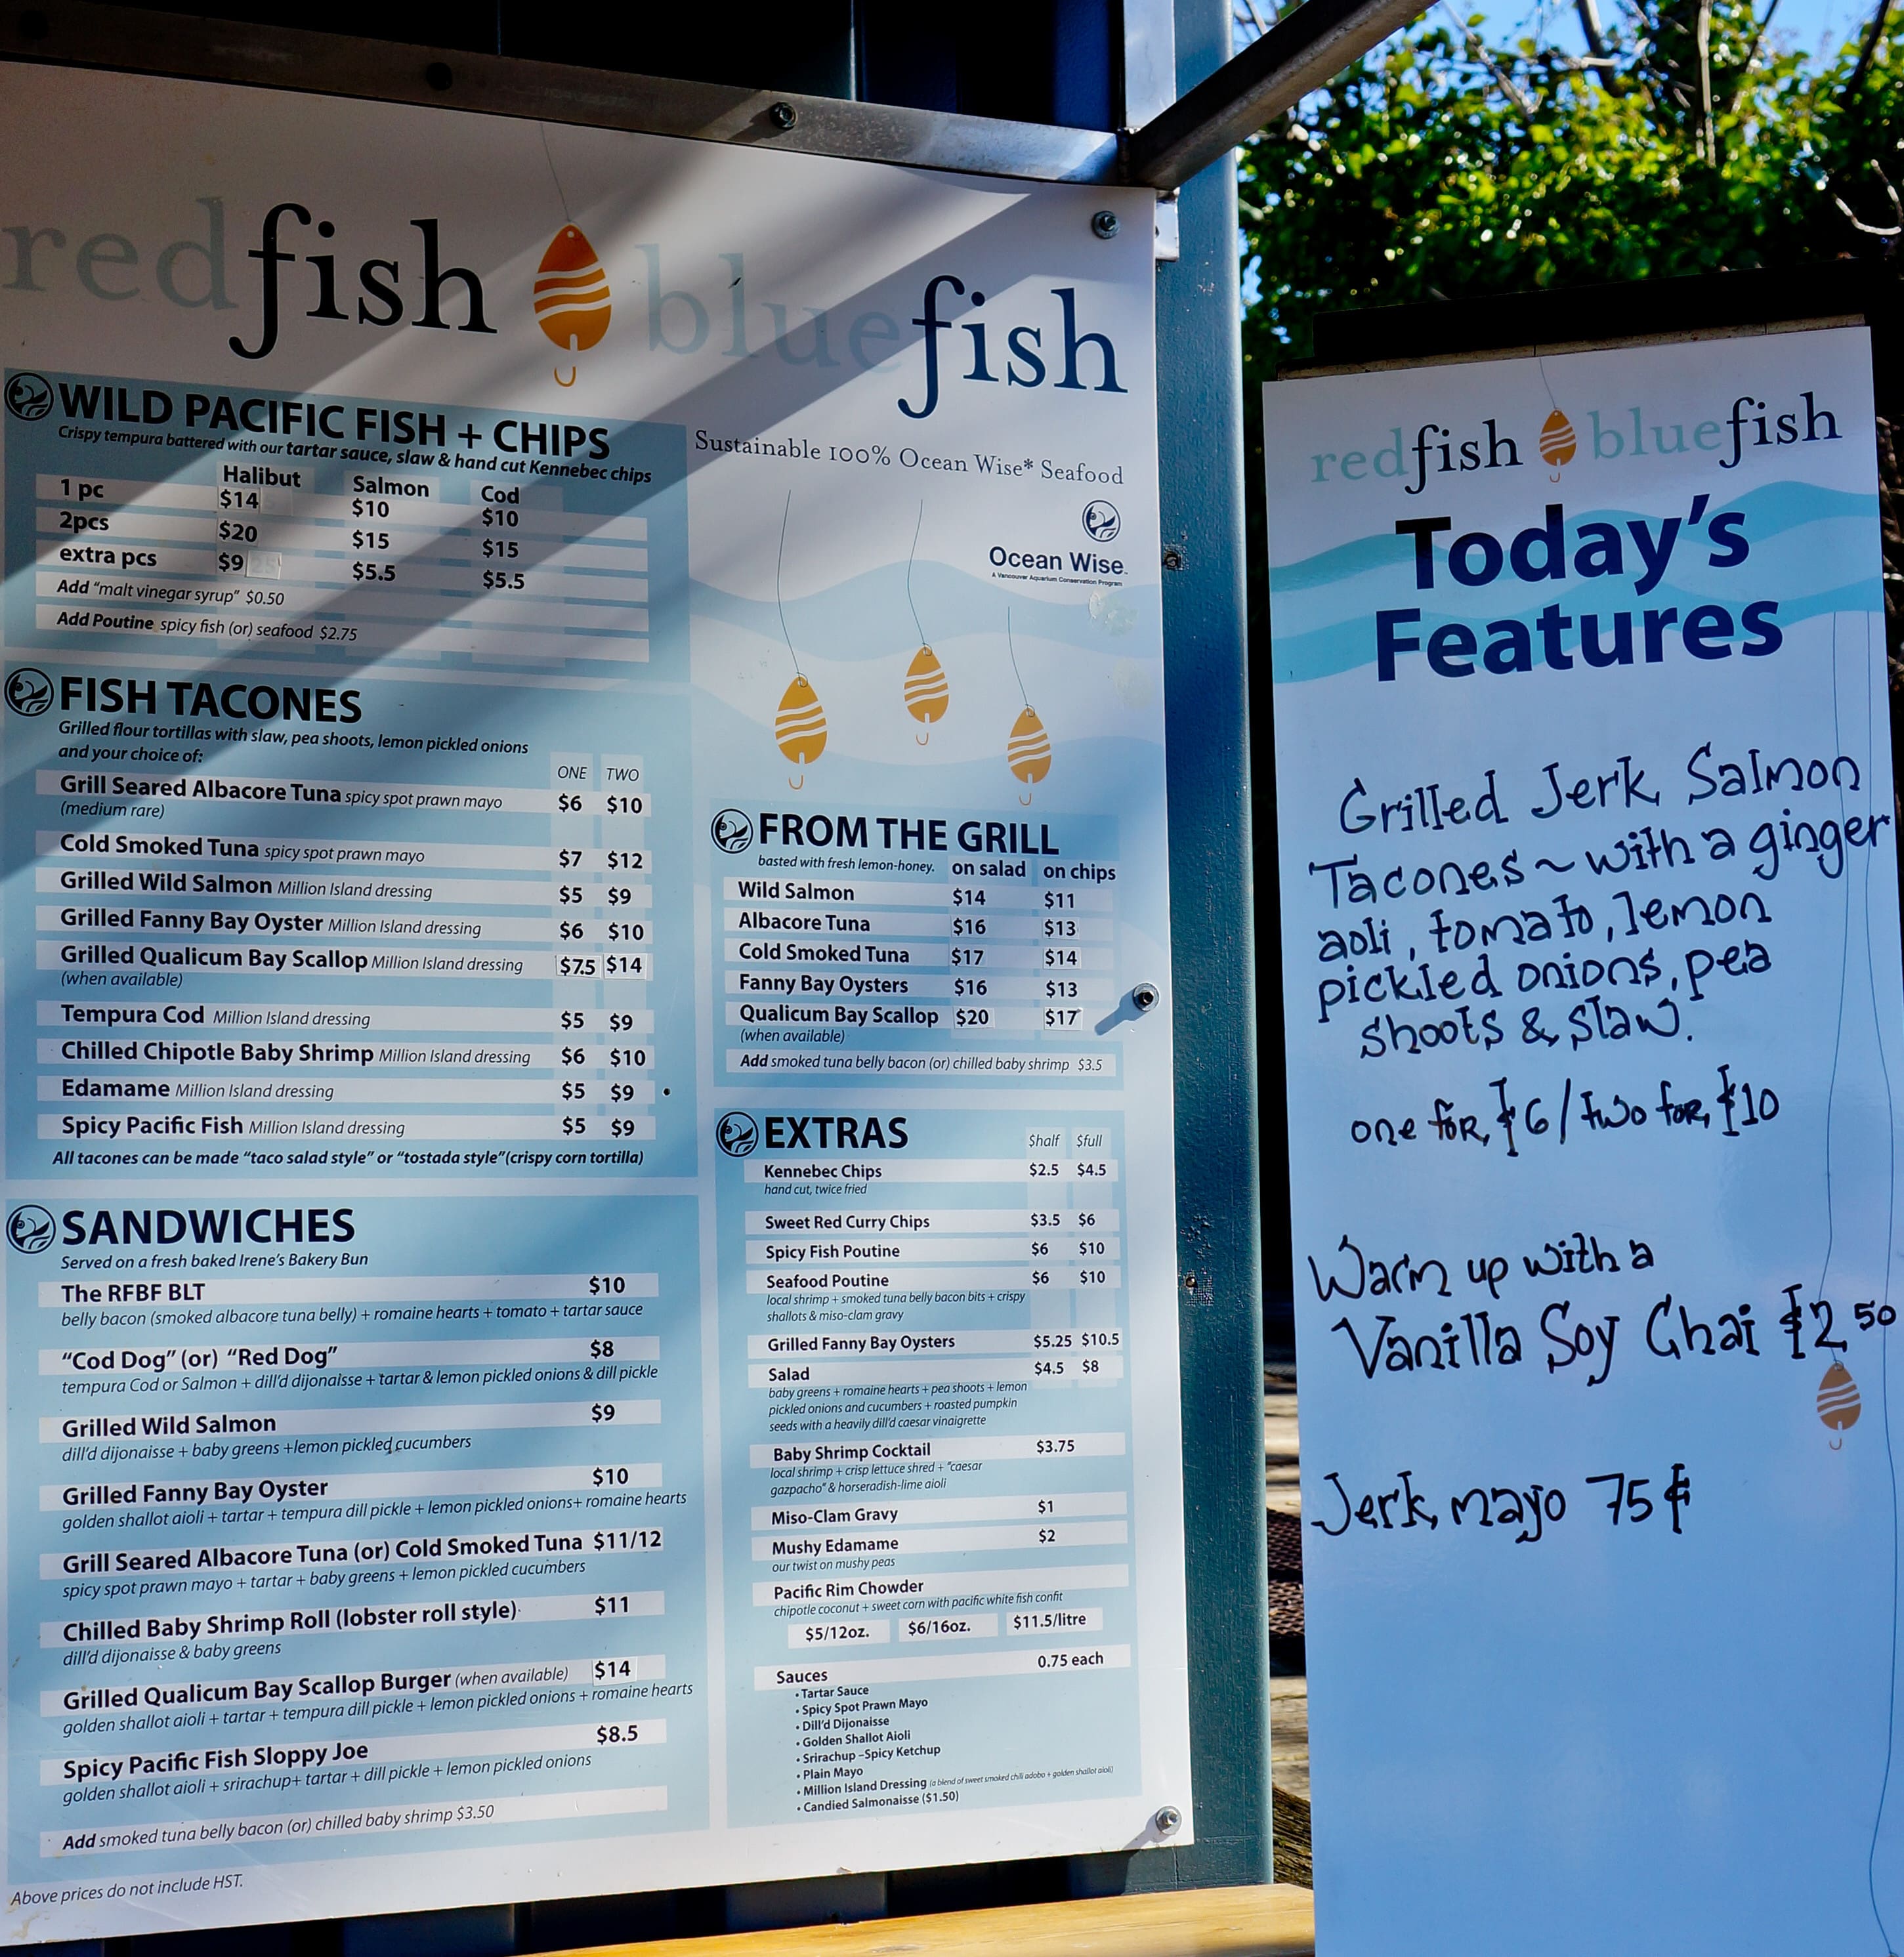 redfish bluefish
WILD PACIFIC FISH + CHIPS
Crispy tempura battered with our tartar sauce, slaw & hand cut Kennebec chips
Halibut Salmon Cod
1 pc $14 $10 $10
2pcs $20 $15 $15
extra pcs $9 $5.5 $5.5
Add "malt vinegar syrup" $0.50
Add Poutine spicy fish (or) seafood $2.75
FISH TACONES
Grilled flour tortillas with slaw, pea shoots, lemon pickled onions
and your choice of:
ONE TWO
Grill Seared Albacore Tuna spicy spot prawn mayo $6 $10
(medium rare)
Cold Smoked Tuna spicy spot prawn mayo $7 $12
Grilled Wild Salmon Million Island dressing $5 $9
Grilled Fanny Bay Oyster Million Island dressing $6 $10
Grilled Qualicum Bay Scallop Million Island dressing $7.5 $14
(when available)
Tempura Cod Million Island dressing $5 $9
Chilled Chipotle Baby Shrimp Million Island dressing $6 $10
Edamame Million Island dressing $5 $9
Spicy Pacific Fish Million Island dressing $5 $9
All tacones can be made "taco salad style" or "tostada style"(crispy corn tortilla)
SANDWICHES
Served on a fresh baked Irene's Bakery Bun
The RFBF BLT $10
belly bacon (smoked albacore tuna belly) + romaine hearts + tomato + tartar sauce
"Cod Dog" (or) "Red Dog" $8
tempura Cod or Salmon + dill'd dijonaisse + tartar & lemon pickled onions & dill pickle
Grilled Wild Salmon $9
dill'd dijonaisse + baby greens +lemon pickled cucumbers
Grilled Fanny Bay Oyster $10
golden shallot aioli + tartar + tempura dill pickle + lemon pickled onions+ romaine hearts
Grill Seared Albacore Tuna (or) Cold Smoked Tuna $11/12
spicy spot prawn mayo + tartar + baby greens + lemon pickled cucumbers
Chilled Baby Shrimp Roll (lobster roll style) $11
dill'd dijonaisse & baby greens
Grilled Qualicum Bay Scallop Burger (when available) $14
golden shallot aioli + tartar + tempura dill pickle + lemon pickled onions + romaine hearts
Spicy Pacific Fish Sloppy Joe $8.5
golden shallot aioli + srirachup+ tartar + dill pickle + lemon pickled onions
Add smoked tuna belly bacon (or) chilled baby shrimp $3.50
Above prices do not include HST.
Sustainable 100% Ocean Wise* Seafood
Ocean Wise
A Vancouver Aquarium Conservation Program
FROM THE GRILL
basted with fresh lemon-honey. on salad on chips
Wild Salmon $14 $11
Albacore Tuna $16 $13
Cold Smoked Tuna $17 $14
Fanny Bay Oysters $16 $13
Qualicum Bay Scallop $20 $17
(when available)
Add smoked tuna belly bacon (or) chilled baby shrimp $3.5
EXTRAS
$half $full
Kennebec Chips $2.5 $4.5
hand cut, twice fried
Sweet Red Curry Chips $3.5 $6
Spicy Fish Poutine $6 $10
Seafood Poutine $6 $10
local shrimp + smoked tuna belly bacon bits + crispy
shallots & miso-clam gravy
Grilled Fanny Bay Oysters $5.25 $10.5
Salad $4.5 $8
baby greens + romaine hearts + pea shoots + lemon
pickled onions and cucumbers + roasted pumpkin
seeds with a heavily dill'd caesar vinaigrette
Baby Shrimp Cocktail $3.75
local shrimp + crisp lettuce shred + "caesar
gazpacho" & horseradish-lime aioli
Miso-Clam Gravy $1
Mushy Edamame $2
our twist on mushy peas
Pacific Rim Chowder
chipotle coconut + sweet corn with pacific white fish confit
$5/12oz. $6/16oz. $11.5/litre
Sauces 0.75 each
• Tartar Sauce
• Spicy Spot Prawn Mayo
• Dill'd Dijonaisse
• Golden Shallot Aioli
• Srirachup –Spicy Ketchup
• Plain Mayo
• Million Island Dressing (a blend of sweet smoked chili adobo + golden shallot aioli)
• Candied Salmonaisse ($1.50)
redfish bluefish
Today's
Features
Grilled Jerk Salmon
Tacones ~ with a ginger
aoli, tomato, lemon
pickled onions, pea
shoots & slaw.
one for $6 / two for $10
Warm up with a
Vanilla Soy Chai $2.50
Jerk mayo 75¢